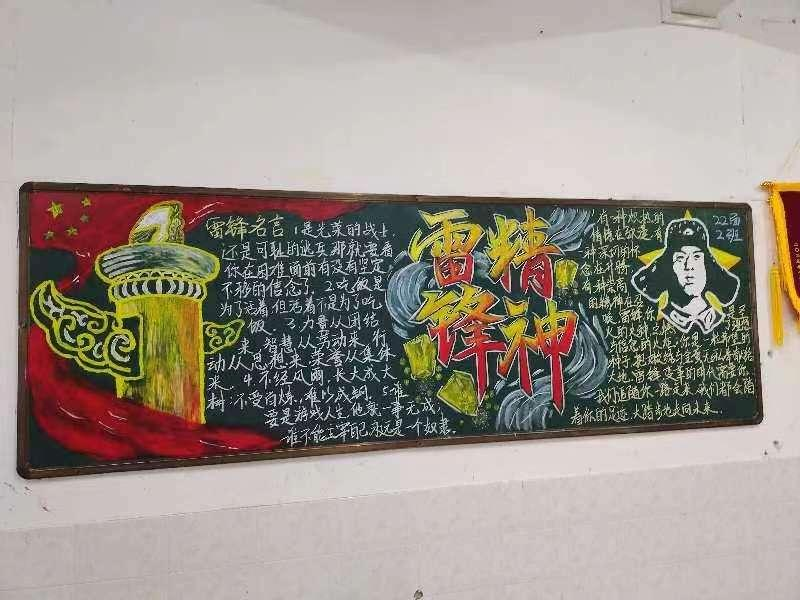 雷锋名言 1是光荣的战士,
还是可耻的逃兵那就要看
你在困难面前有没有坚定
不移的信念了 2吃饭是
为了活着但活着不是为了吃
饭 3力量从团结
来 智慧从劳动来 行
动从思想来荣誉从集体
来 4.不经风雨,长大成大
树:不受百炼,难以成钢 5.谁
要是游戏人生他就一事无成,
谁不能主宰自己永远是一个奴隶。
雷锋
精神
有一种炽热的
情怀在你这有
一种深切的怀
念在升腾
有一种崇高
的精神在
22届
2班
我们追随你一路走来 我们都会踏
着你的足迹 大踏步地走向未来.